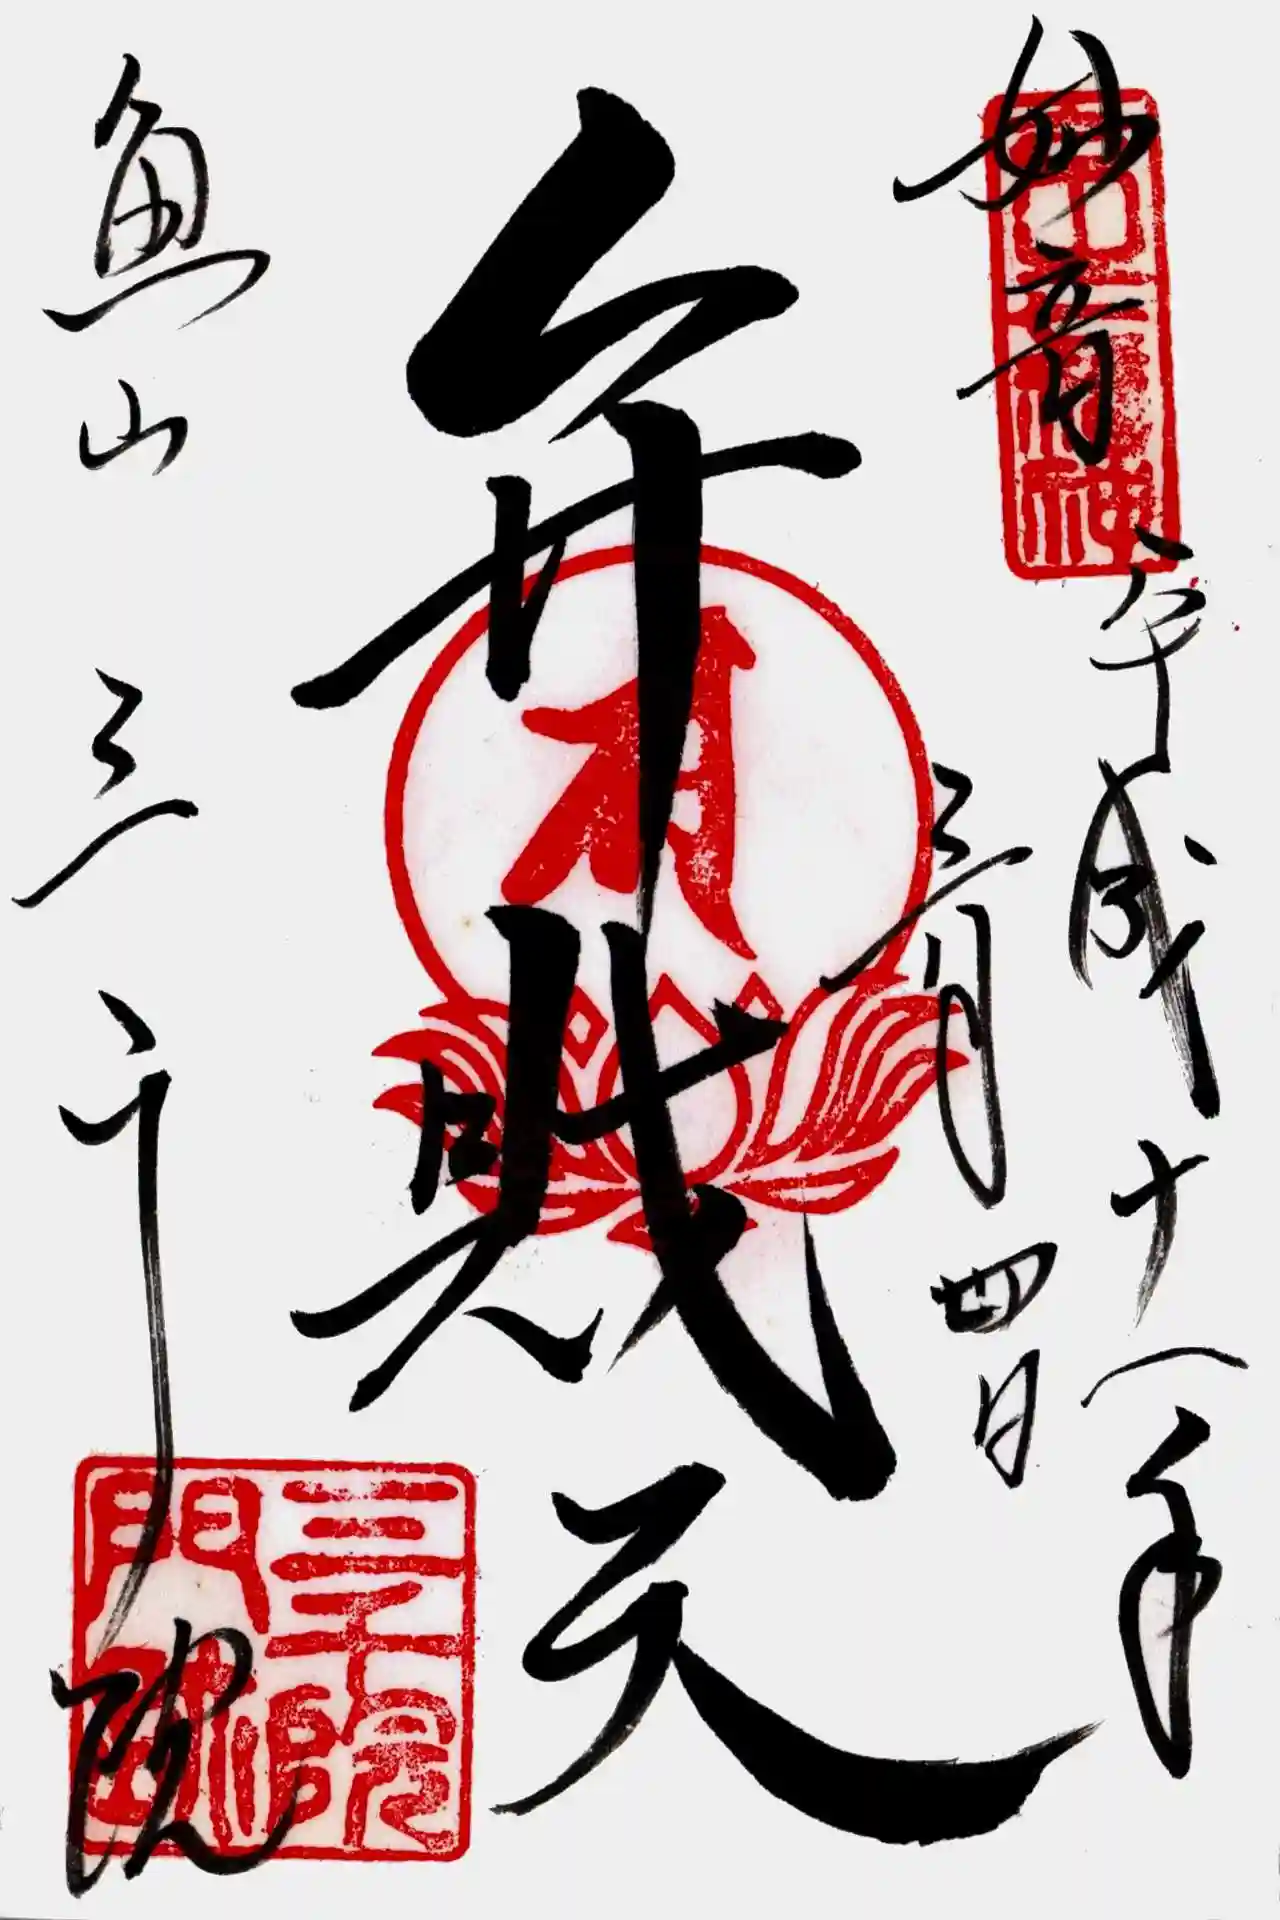 妙音
平成十八年
三月四日
弁財天
魚山 三千院
三千院
門跡